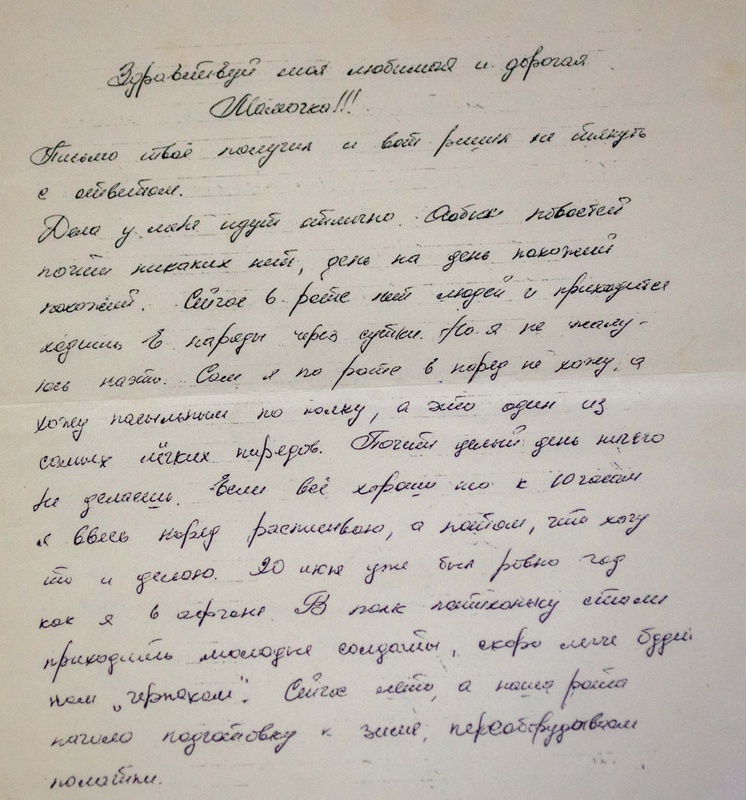 Здравствуй моя любимая и дорогая
Мамочка!!!
Письмо твоё получил и вот решил не тянуть
с ответом.
Дела у меня идут отлично. Особых новостей
почти никаких нет, день на день похожий
похожий. Сейчас в роте нет людей и приходится
ходить в наряды через сутки. Но я не жалу-
юсь на это. Сам я по роте в наряд не хожу, а
хожу посыльным по полку, а это один из
самых лёгких нарядов. Почти целый день ничего
не делаешь. Если всё хорошо то к 10 часам
я ввесь наряд расписываю, а потом, что хочу
то и делаю. 20 июня уже был ровно год
как я в афгане. В полк потихоньку стали
приходить молодые солдаты, скоро легче будет
нам „черпакам". Сейчас лето, а наша рота
начала подготовку к зиме, переоборудываем
палатки.